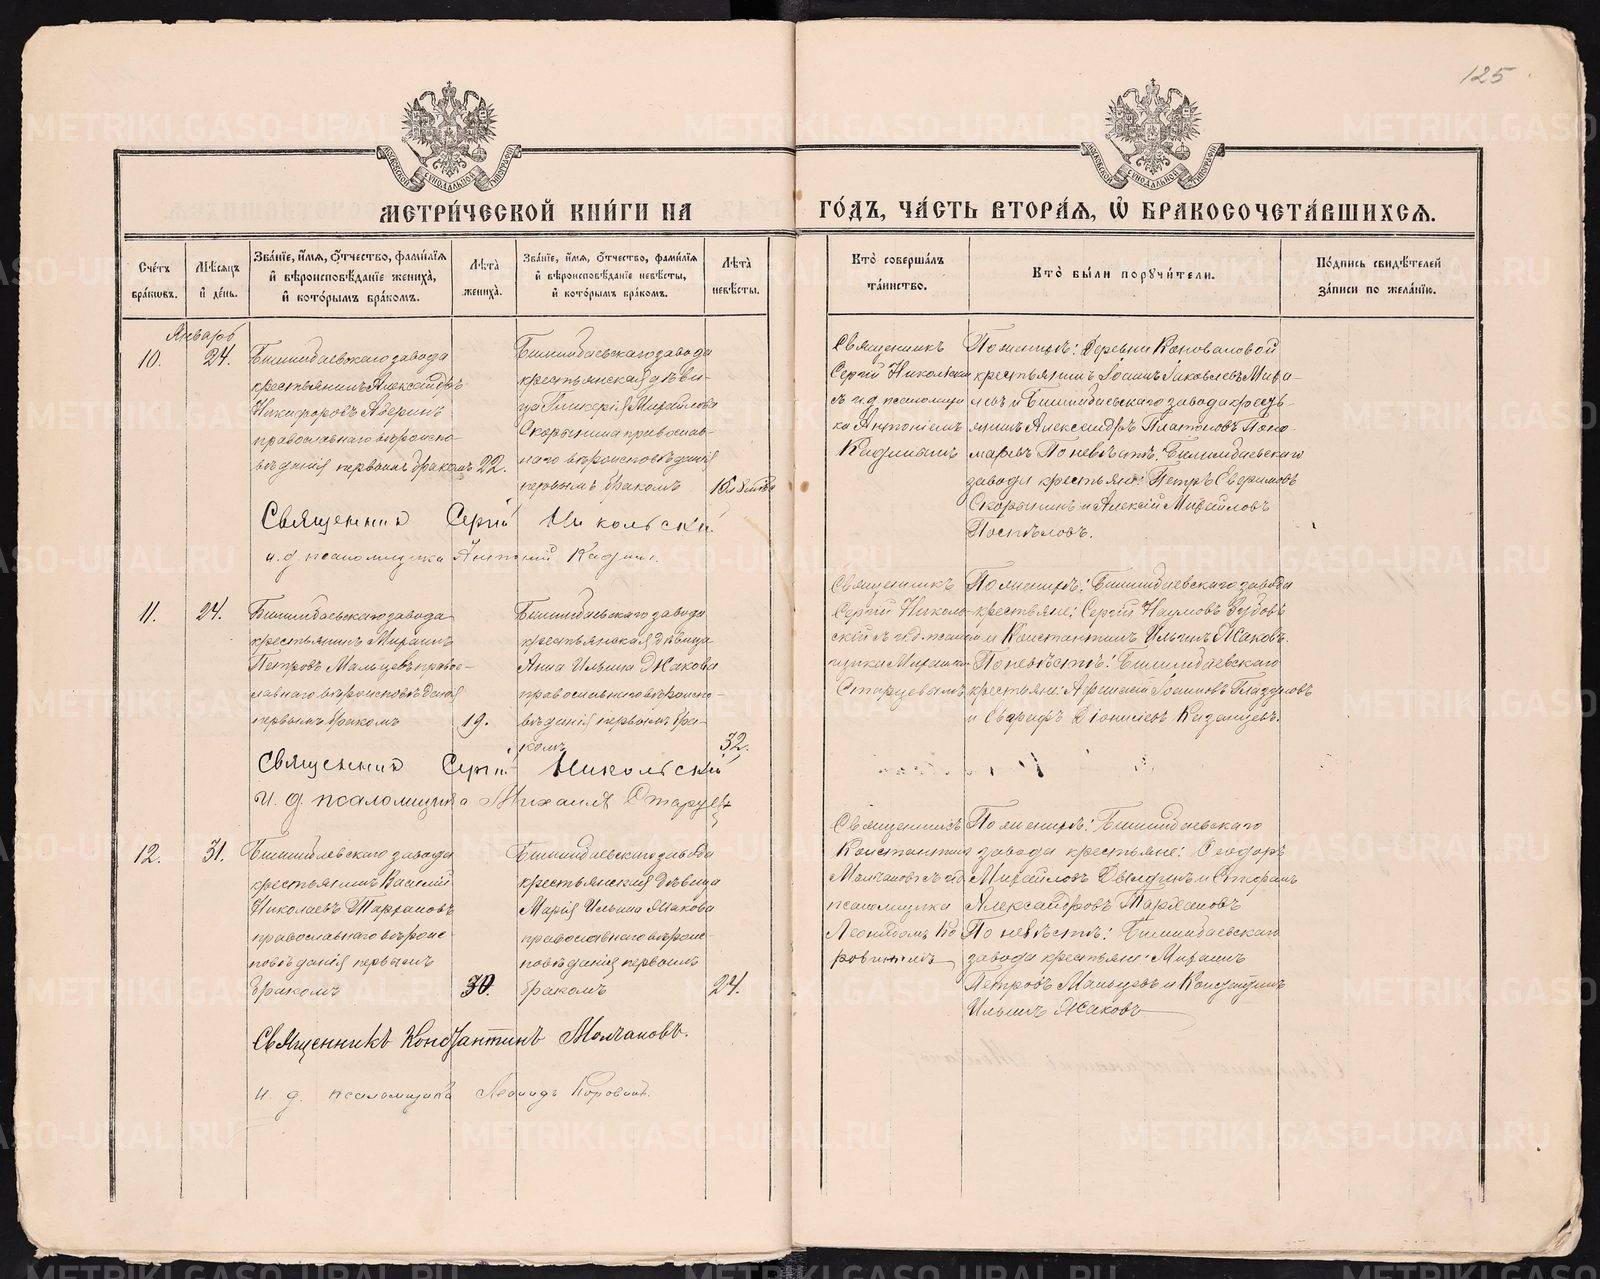 125
МЕТРИ́ЧЕСКОЙ КНИ́ГИ НА
ГО́ДЪ, ЧА́СТЬ ВТОРА́Я, Ѡ БРАКОСОЧЕТА́ВШИХСЯ.
Сче́тъ бра́кѡвъ.
Мѣ́сяцъ и҆ де́нь.
Зва́нїе, и҆́мя, ѻ҆́тчество, фами́лїя
и҆ вѣроисповѣ́данїе жениха̀,
и҆ кото́рымъ бра́комъ.
Лѣ́та жениха̀.
Зва́нїе, и҆́мя, ѻ҆́тчество, фами́лїя
и҆ вѣроисповѣ́данїе невѣ́сты,
и҆ кото́рымъ бра́комъ.
Лѣ́та невѣ́сты.
Кто̀ соверша́лъ
та́инство.
Кто̀ бы́ли порꙋчи́тели.
По́дпись свидѣ́телей
за́писи по жела́нїю.
Январь
10.
24.
Билимбаевскаго завода
крестьянинъ Александръ
Никифоровъ Аверинъ
православнаго вѣроиспо-
вѣданія первымъ бракомъ
22.
Билимбаевскаго завода
крестьянская дѣви-
ца Гликерія Михайлова
Скорынина православ-
наго вѣроисповѣданія
первымъ бракомъ
Священникъ
Сергій Никольскій
съ и.д. псаломщи
ка Антоніемъ
Кадминымъ
Поженихѣ: Деревни Коноваловой
крестьянинъ Іоаннъ Іаковлевъ
и Билимбаевскаго завода кресть-
янинъ Александръ Платоновъ Поно-
маревъ По невѣстѣ: Билимбаевскаго
завода крестьяне: Петръ
Скорынинъ и Алексій Михайловъ
Поспѣловъ.
Священник Сергій Никольский
и. д. псаломщика Антоній
11.
24.
Билимбаевскаго завода
крестьянинъ Михаилъ
Петровъ Мальцевъ право-
славнаго вѣроисповѣданія
первымъ бракомъ
19.
Билимбаевскаго завода
крестьянская дѣвица
Анна Ильина Жакова
православнаго вѣроиспо-
вѣданія первымъ бра-
комъ
32.
Священникъ
Сергій Николь-
скій съ и.д. псалом
щика Михаиломъ
Старцевымъ
По женихѣ: Билимбаевскаго завода
крестьяне: Сергій Наумовъ Зубовъ
и Константинъ Ильинъ Жаковъ.
По невѣстѣ: Билимбаевскаго
крестьяне: Іоанновъ
и Діонисіевъ Казанцевъ.
Священник Сергій Никольский
и. д. псаломщика Михаилъ Старцевъ
12.
31.
Билимбаевскаго завода
крестьянинъ Василій
Николаевъ Тархановъ
православнаго вѣроис-
повѣданія первымъ
бракомъ
30.
Билимбаевскаго завода
крестьянская дѣвица
Марія Ильина Жакова
православнаго вѣроис-
повѣданія первымъ
бракомъ
24.
Священникъ
Константинъ
Молчановъ съ и.д
псаломщика
Леонидомъ Ко
ровинымъ
По женихѣ: Билимбаевскаго
завода крестьяне: Ѳеодоръ
Михайловъ и Стефанъ
Александровъ Тархановъ
По невѣстѣ: Билимбаевскаго
завода крестьяне: Михаилъ
Петровъ Мальцевъ и Константинъ
Ильинъ Жаковъ
Священникъ Константинъ Молчановъ.
и. д. псаломщика Леонидъ Коровинъ.
METRIKI.GASO-URAL.RU